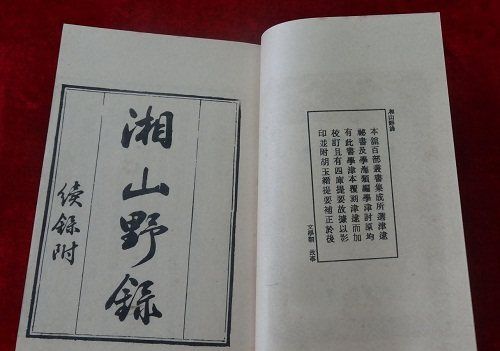 湘山野錄
本館百部叢書集成所選津逮
祕書及學海類編學津討原均
有此書學津本覆刻津逮而加
校訂且有四庫提要故據以影
印並附胡玉縉提要補正於後
文學類
湘山野錄
續錄附